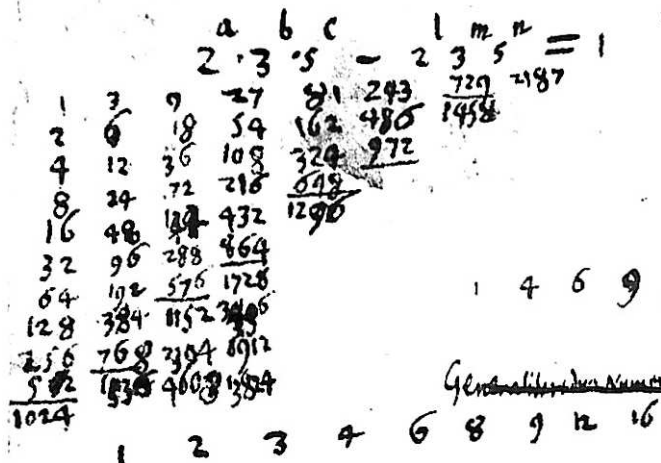 a b c l m n
2 · 3 · 5 − 2 3 5 = 1
1 3 9 27 81 243 729 2187
2 6 18 54 162 486 1458
4 12 36 108 324 972
8 24 72 216 648
16 48 144 432 1296
32 96 288 864
64 192 576 1728
128 384 1152
256 768 2304 6912
512 4608 13824
1024
1 4 6 9
1 2 3 4 6 8 9 12 16